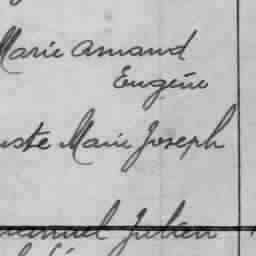 Marie Armand
Eugène
uste Marie Joseph
Julien